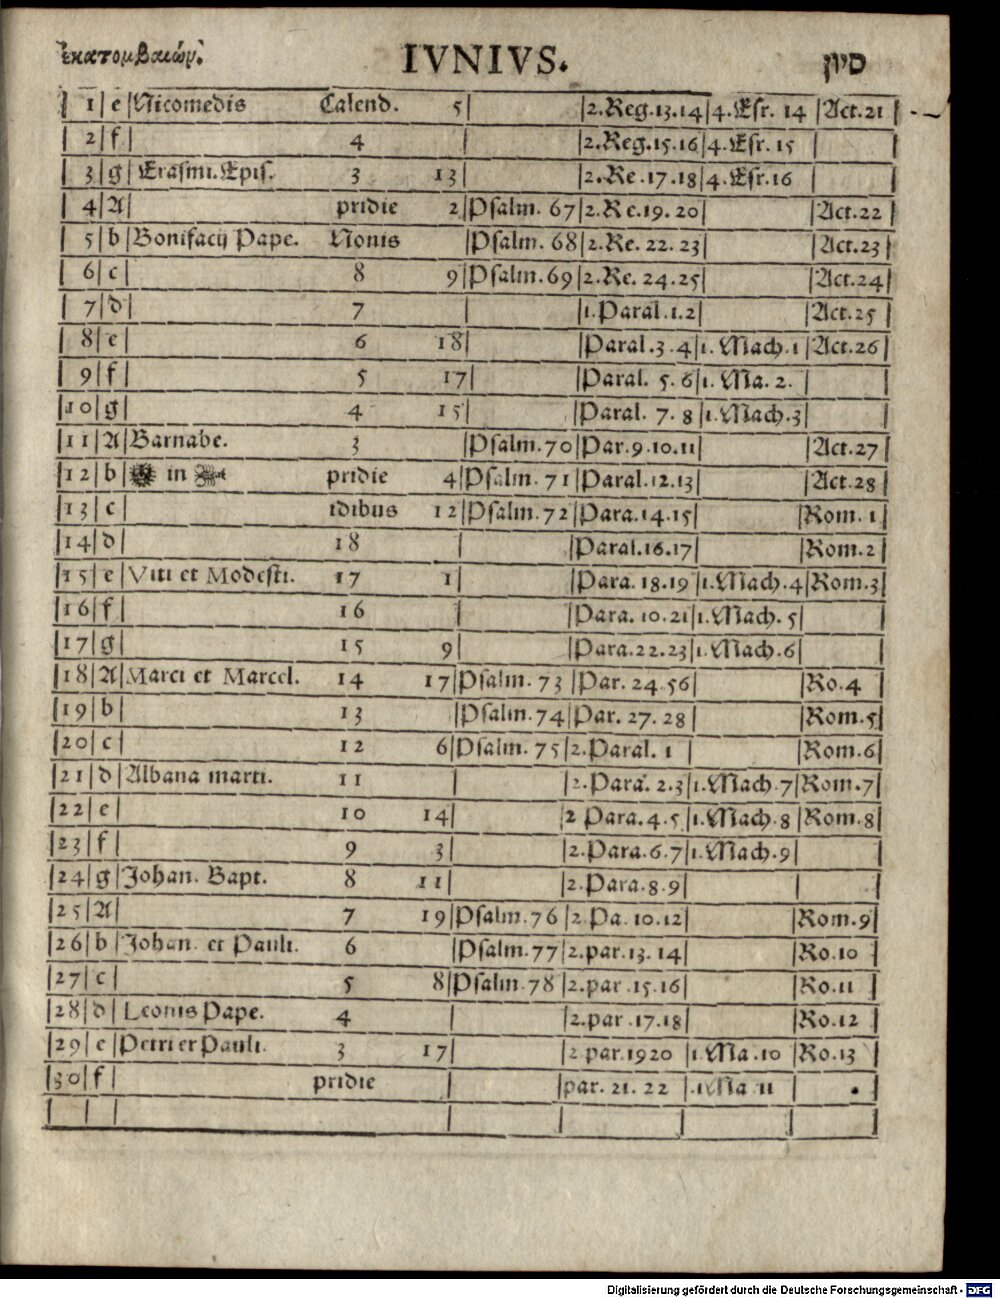 Ἑκατομβαιών. IVNIVS. סיון
1 e Nicomedis Calend. 5 2.Reg.13.14 4.Esr. 14 Act.21
2 f 4 2.Reg.15.16 4.Esr.15
3 g Erasmi.Epis. 3 13 2.Re.17.18 4.Esr.16
4 A pridie 2 Psalm. 67 2.Re.19.20 Act.22
5 b Bonifacij Pape. Nonis Psalm. 68 2.Re. 22. 23 Act.23
6 c 8 9 Psalm.69 2.Re. 24.25 Act.24
7 d 7 1.Paral.1.2 Act.25
8 e 6 18 Paral.3.4 1. Mach.1 Act.26
9 f 5 17 Paral. 5.6 1. Ma. 2.
10 g 4 15 Paral. 7. 8 1.Mach.3
11 A Barnabe. 3 Psalm.70 Par.9.10.11 Act.27
12 b in pridie 4 Psalm. 71 Paral.12.13 Act.28
13 c idibus 12 Psalm.72 Para.14.15 Rom. 1
14 d 18 Paral.16.17 Rom.2
15 e Viti et Modesti. 17 1 Para. 18.19 1.Mach.4 Rom.3
16 f 16 Para. 10.21 1.Mach. 5
17 g 15 9 Para.22.23 1.Mach.6
18 A Marci et Marcel. 14 17 Psalm. 73 Par. 24.56 Ro.4
19 b 13 Psalm.74 Par. 27. 28 Rom.5
20 c 12 6 Psalm. 75 2.Paral. 1 Rom.6
21 d Albana marti. 11 2.Para. 2.3 1.Mach.7 Rom.7
22 e 10 14 2 Para.4.5 1.Mach.8 Rom.8
23 f 9 3 2.Para.6.7 1.Mach.9
24 g Johan. Bapt. 8 11 2.Para.8.9
25 A 7 19 Psalm.76 2.Pa. 10.12 Rom.9
26 b Johan. et Pauli. 6 Psalm.77 2.par.13. 14 Ro.10
27 c 5 8 Psalm.78 2.par.15.16 Ro.11
28 d Leonis Pape. 4 2.par.17.18 Ro.12
29 e Petri et Pauli. 3 17 2 par.1920 1.Ma.10 Ro.13
30 f pridie par. 21. 22 .1Ma 11
Digitalisierung gefördert durch die Deutsche Forschungsgemeinschaft - DFG